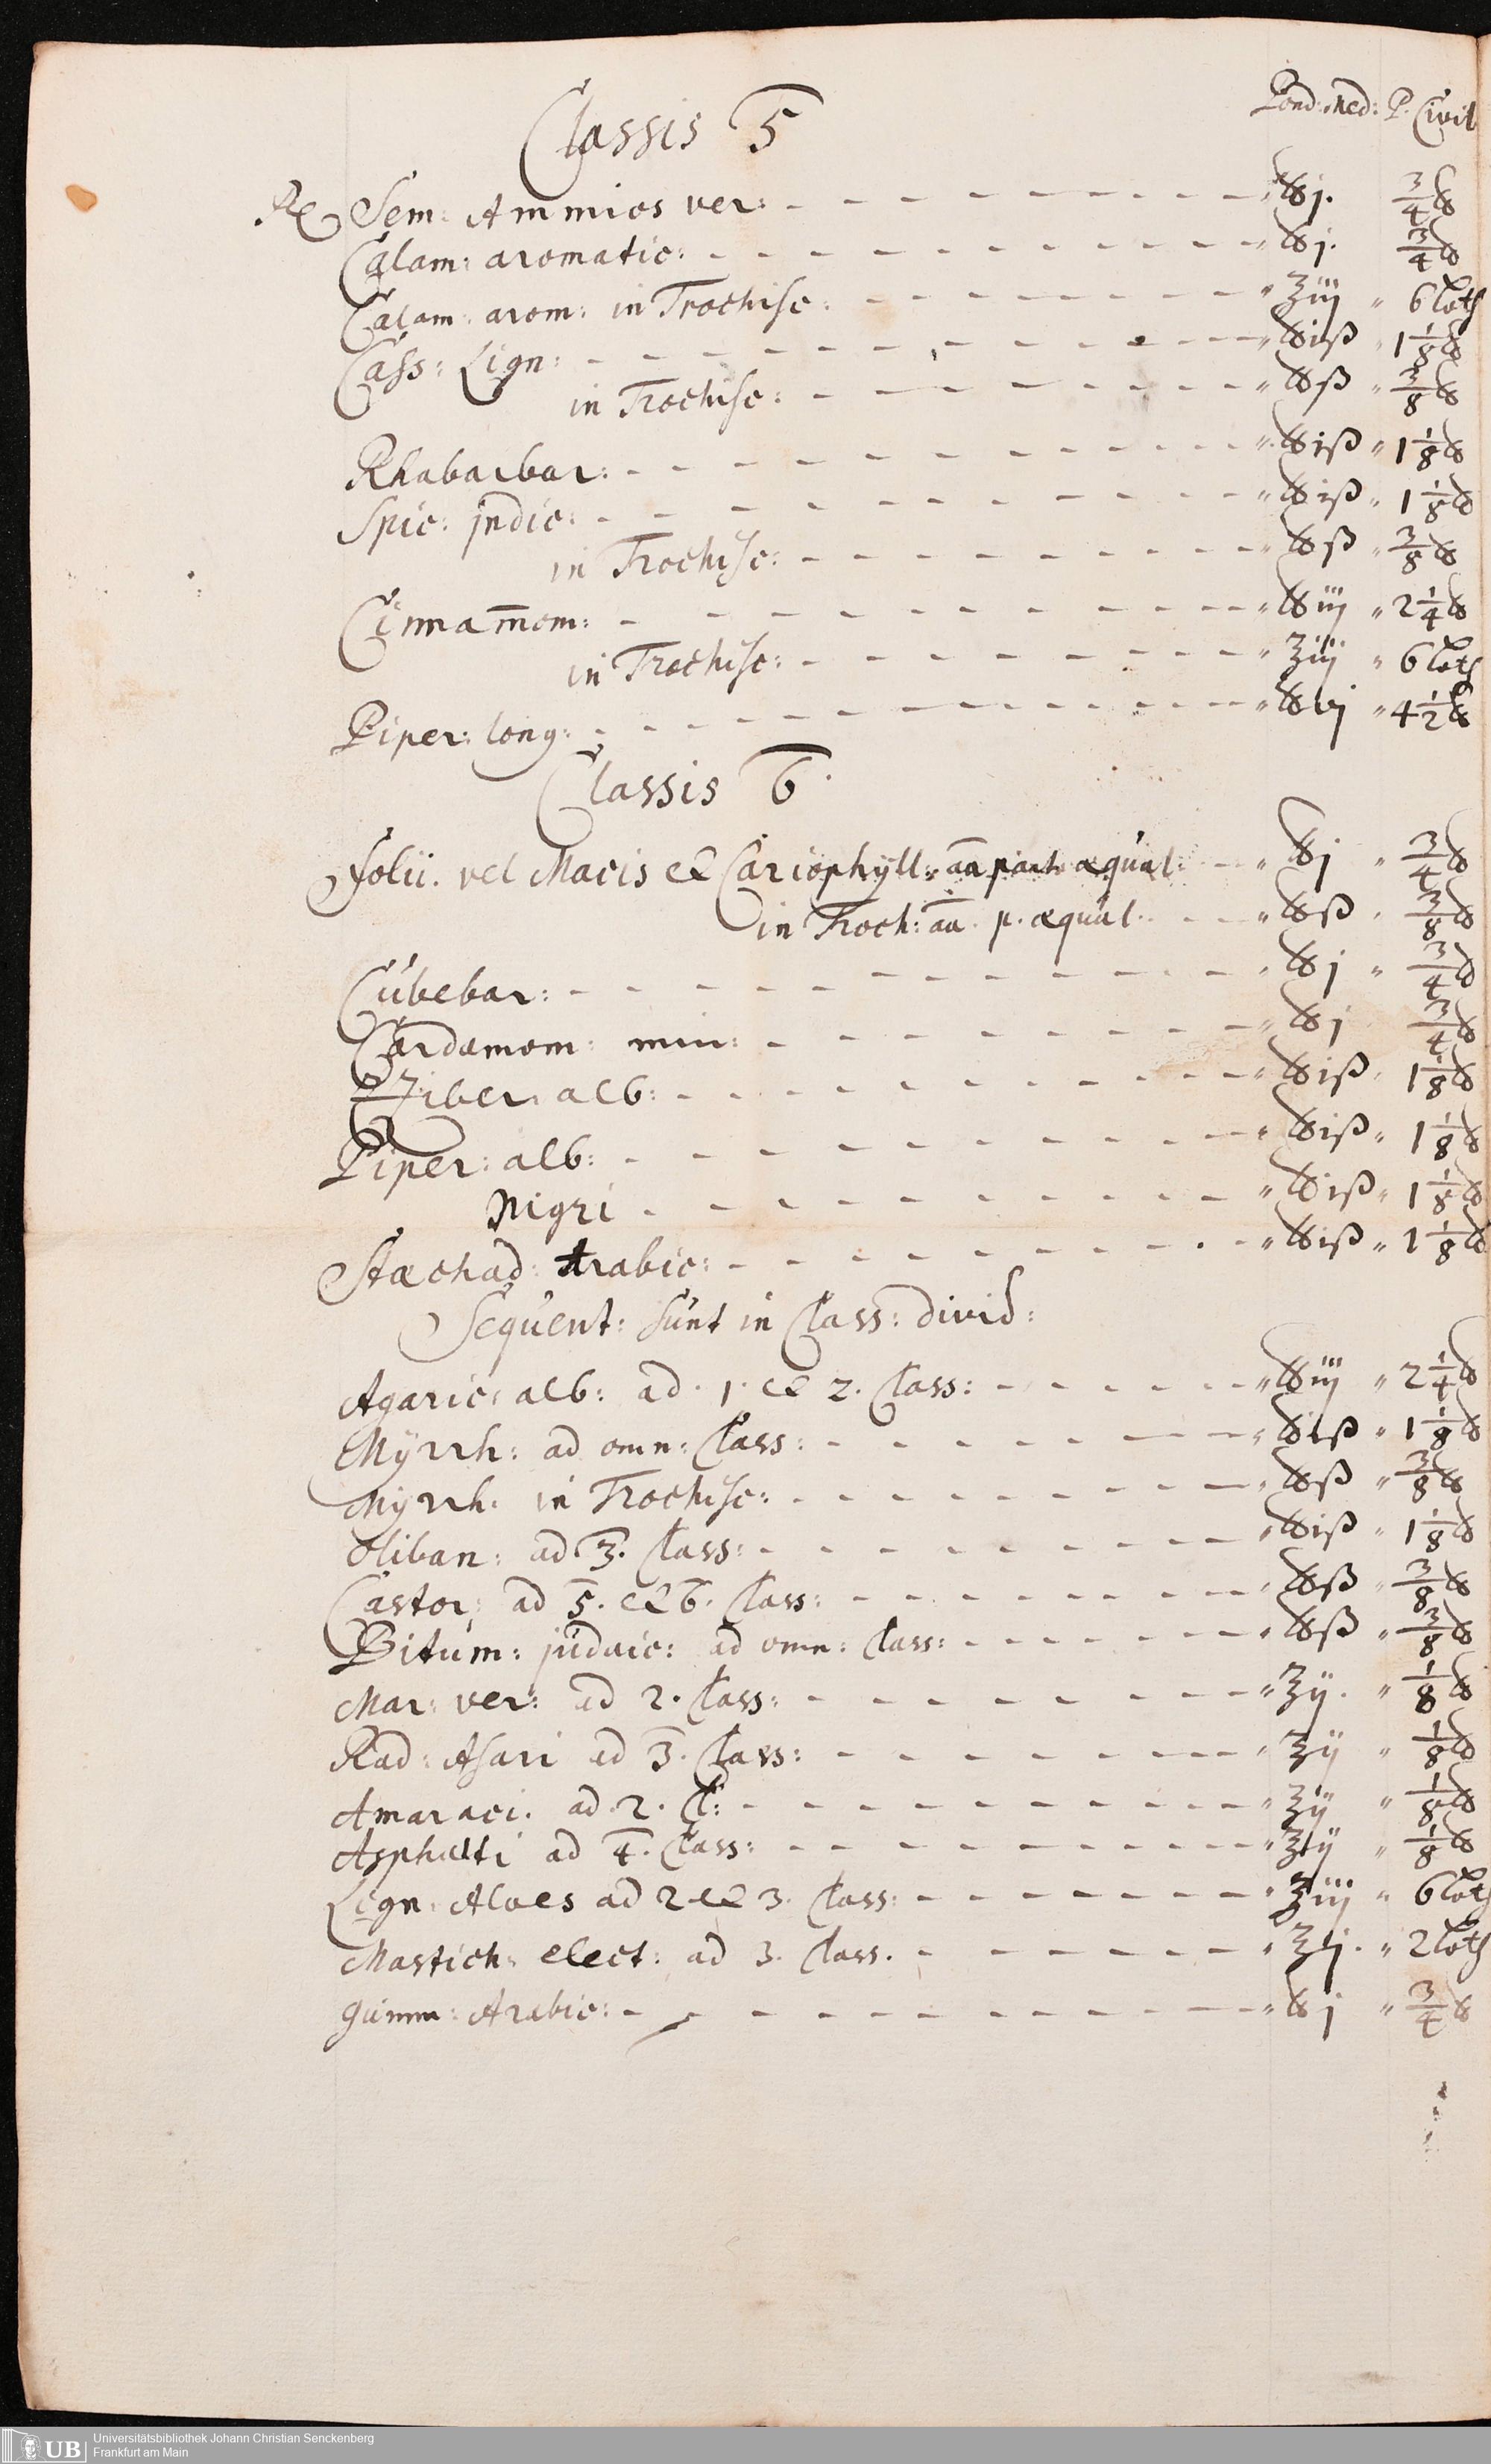 Pond: Med: P. Civil
Classis 5
℞ Sem: Ammios ver: - - - - - - - - - ℔j. ¾ ℔
Calam: aromatic: - - - - - - - - - - - „ ℔j. ¾ ℔
Calam: arom: in Trochisc: - - - - - - - - „ ℥iij „ 6 Loth
Cass: Lign: - - - - - - - - - - - - „ ℔iß „ 1⅛ ℔
in Trochisc: - - - - - - - - - „ ℔ß „ ⅜ ℔
Rhabarbar: - - - - - - - - - - - - „ ℔iß „ 1⅛ ℔
Spic: jndic: - - - - - - - - - - - - „ ℔iß „ 1⅛ ℔
in Trochisc: - - - - - - - - - - „ ℔ß „ ⅜ ℔
Cinnam̅om: - - - - - - - - - - - - „ ℔iij „ 2¼ ℔
in Trochisc: - - - - - - - - - „ ℥iij „ 6 Loth
Piper: long: - - - - - - - - - - - - „ ℔vj „ 4½ ℔
Classis 6.
Folii. vel Macis et Cariophyll: a̅a̅ part æqual: - - „ ℔j „ ¾ ℔
in Troch: a̅a̅. p. æqual. - - - „ ℔ß „ ⅜ ℔
Cubebar: - - - - - - - - - - - - „ ℔j „ ¾ ℔
Cardamom: min: - - - - - - - - - „ ℔j ¾ ℔
Zziber: alb: - - - - - - - - - - - „ ℔iß „ 1⅛ ℔
Piper: alb: - - - - - - - - - - - - „ ℔iß „ 1⅛ ℔
Nigri - - - - - - - - - - - „ ℔iß „ 1⅛ ℔
Stæchad: Arabic: - - - - - - - - - - „ ℔iß „ 1⅛ ℔
Sequent: sunt in Class: divid:
Agaric: alb: ad. 1. et 2. Class: - - - - - - „ ℔iij „ 2¼ ℔
Myrrh: ad omn: Class: - - - - - - - - - „ ℔iß „ 1⅛ ℔
Myrrh: in Trochisc: - - - - - - - - - - „ ℔ß „ ⅜ ℔
Oliban: ad 3. Class: - - - - - - - - - - „ ℔iß „ 1⅛ ℔
Castor: ad 5. et 6. Class: - - - - - - - - „ ℔ß „ ⅜ ℔
Bitum: judaic: ad omn: Class: - - - - - - - „ ℔ß „ ⅜ ℔
Mar: ver: ad 2. Class: - - - - - - - - - „ ℥ij. „ ⅛ ℔
Rad: Asari ad 3. Class: - - - - - - - - - „ ℥ij „ ⅛ ℔
Amaraci. ad. 2. Cl: - - - - - - - - - - - „ ℥ij „ ⅛ ℔
Asphalti ad 4. Class: - - - - - - - - - - „ ℥ij „ ⅛ ℔
Lign. Aloes ad 2 et 3. Class: - - - - - - - „ ℥iij „ 6 Loth
Mastich: elect: ad 3. Class. - - - - - - - „ ℥j. „ 2 Loth
Gumm: Arabic: - - - - - - - - - - - - „ ℔j „ ¾ ℔
UB
Universitätsbibliothek Johann Christian Senckenberg
Frankfurt am Main